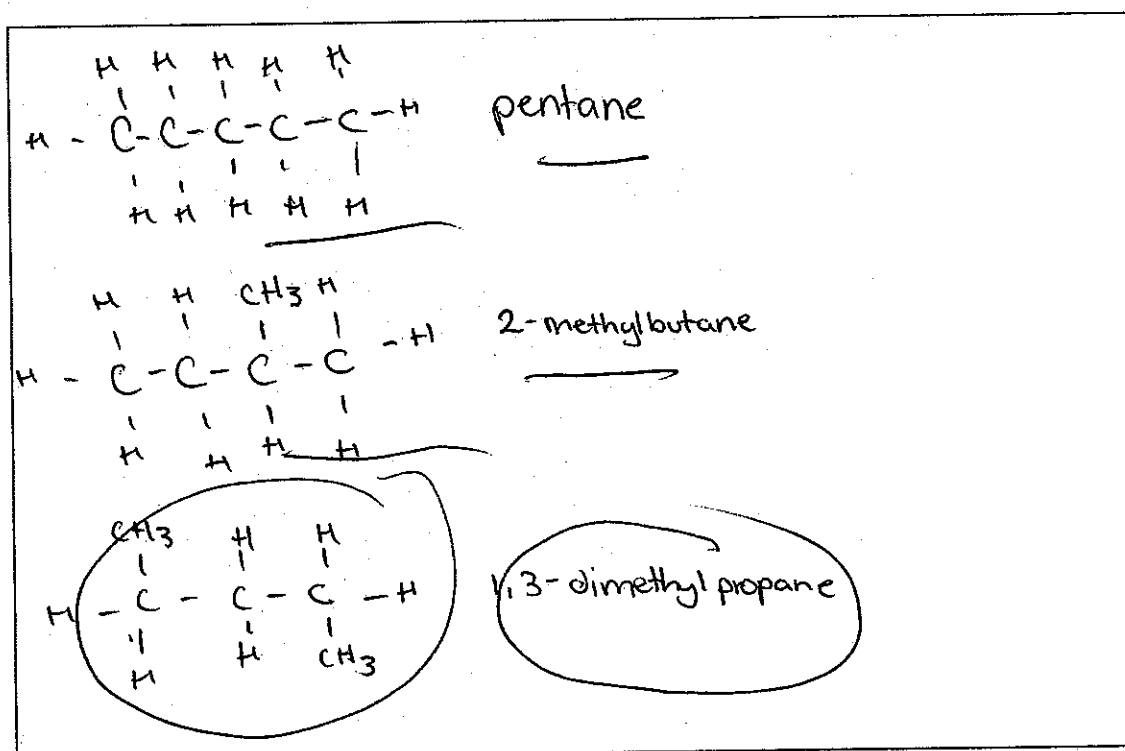 H H H H H
H - C - C - C - C - C - H pentane
H H H H H
H H CH3 H
H - C - C - C - C - H 2-methylbutane
H H H H
CH3 H H
H - C - C - C - H 1,3-dimethylpropane
H H CH3